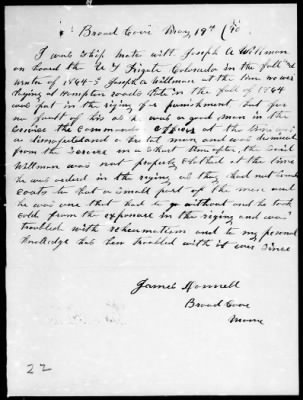 Broad Cove May 19th / 90
I was Ship mate with Joseph A Willman
on board the U S Frigate Colorado in the fall &
winter of 1864-5 Joseph A Willman at the time we was
lying at Hampton roads Va in the fall of 1864
was put in the riging for punishment but for
no fault of his as he was a good man in the
Service the Commanding officer at the time was
a and brutal man and was dismised
from the Service in a Short time after, the Said
Willman was not properly clothed at the time
he was orderd in the riging as they had not issued
coats to but a small part of the men and
he was one that had to go without and he took
cold from the exposure in the riging and was
troubled with rehumatism and to my personal
knolledge has ben troubled with it ever since
James
Broad Cove
Maine
22